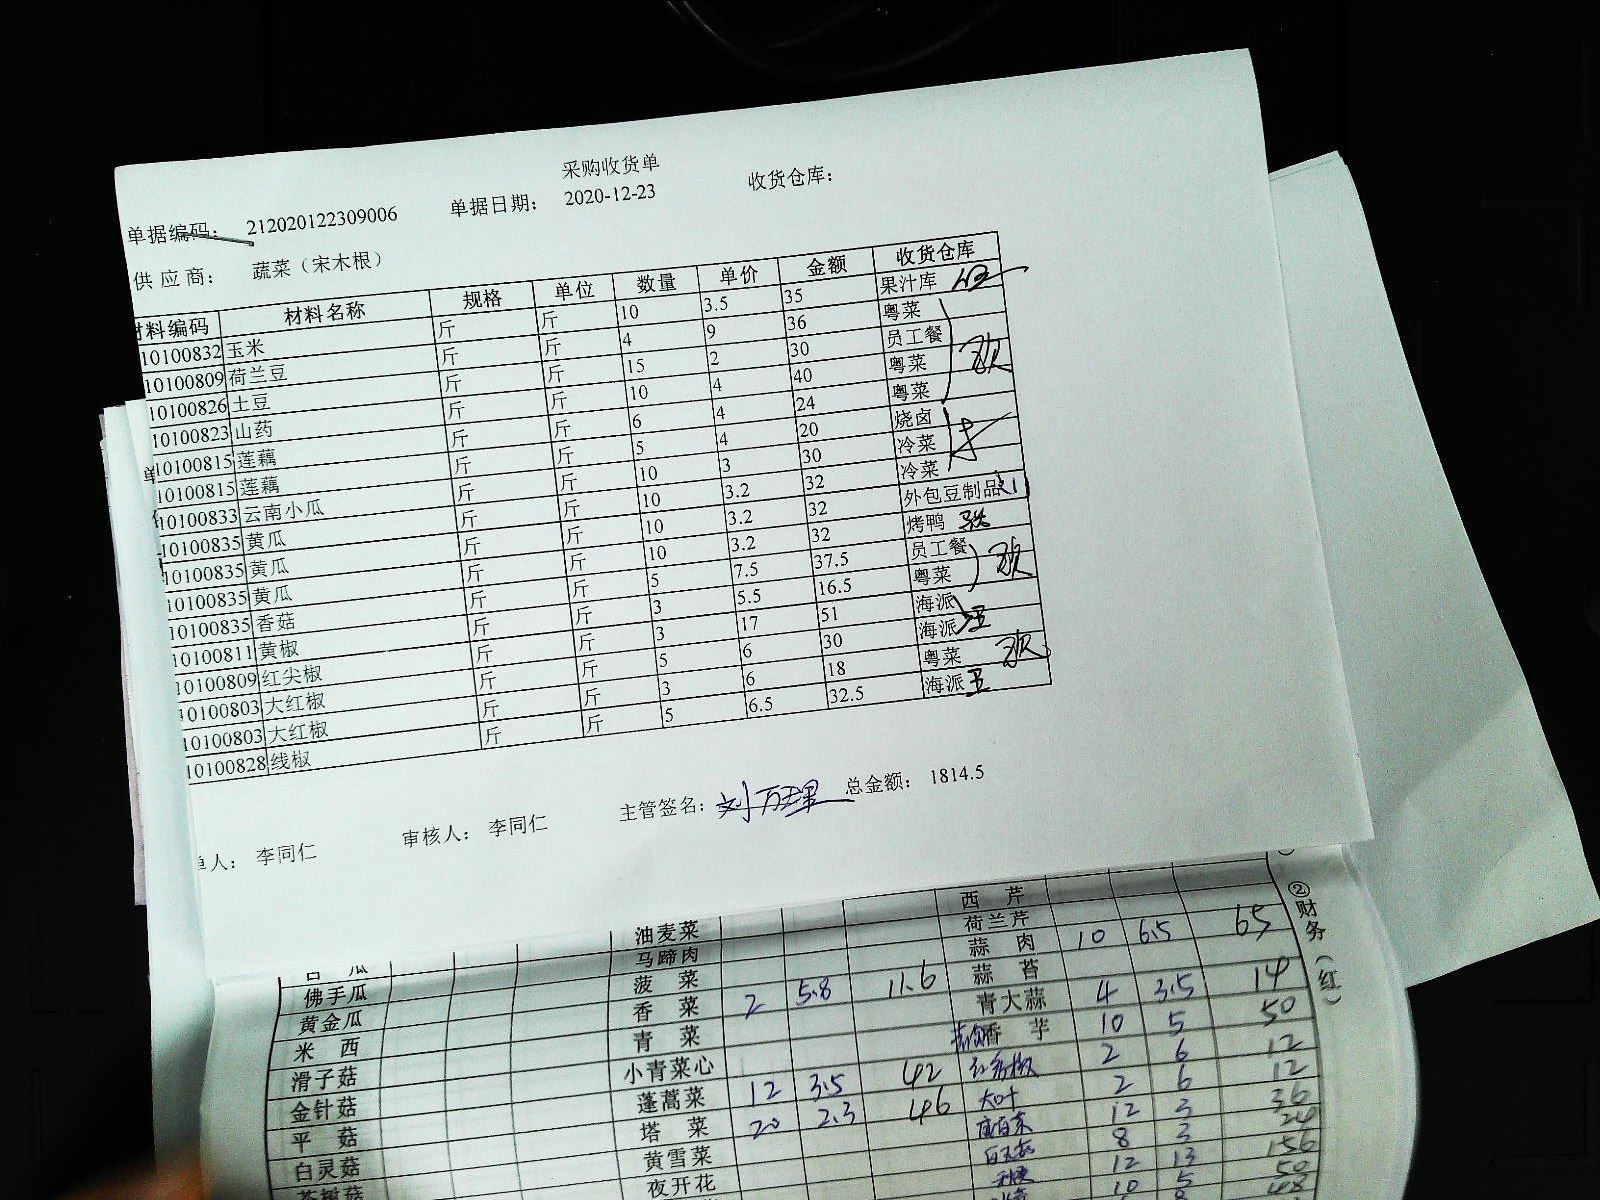 采购收货单
单据编码： 212020122309006 单据日期： 2020-12-23 收货仓库：
供应商： 蔬菜（宋木根）
材料编码 材料名称 规格 单位 数量 单价 金额 收货仓库
10100832 玉米 斤 斤 10 3.5 35 果汁库
10100809 荷兰豆 斤 斤 4 9 36 粤菜
10100826 土豆 斤 斤 15 2 30 员工餐
10100823 山药 斤 斤 10 4 40 粤菜
10100815 莲藕 斤 斤 6 4 24 粤菜
10100815 莲藕 斤 斤 5 4 20 烧卤
10100833 云南小瓜 斤 斤 10 3 30 冷菜
10100835 黄瓜 斤 斤 10 3.2 32 冷菜
10100835 黄瓜 斤 斤 10 3.2 32 外包豆制品
10100835 黄瓜 斤 斤 10 3.2 32 烤鸭
10100835 香菇 斤 斤 5 7.5 37.5 员工餐
10100811 黄椒 斤 斤 3 5.5 16.5 粤菜
10100809 红尖椒 斤 斤 3 17 51 海派
10100803 大红椒 斤 斤 5 6 30 海派
10100803 大红椒 斤 斤 3 6 18 粤菜
10100828 线椒 斤 斤 5 6.5 32.5 海派
单人： 李同仁 审核人： 李同仁 主管签名： 总金额： 1814.5
西芹
油麦菜 荷兰芹
马蹄肉 蒜肉 10 6.5 65
佛手瓜 菠菜 蒜苔
黄金瓜 香菜 2 5.8 11.6 青大蒜 4 3.5 14
米西 青菜 香芋 10 5 50
滑子菇 小青菜心 2 6 12
金针菇 蓬蒿菜 12 3.5 42 大叶 2 6 12
平菇 塔菜 20 2.3 46 12 3 36
白灵菇 黄雪菜 8 3 24
茶树菇 夜开花 12 13 156
10 5 50
48
②财务（红）